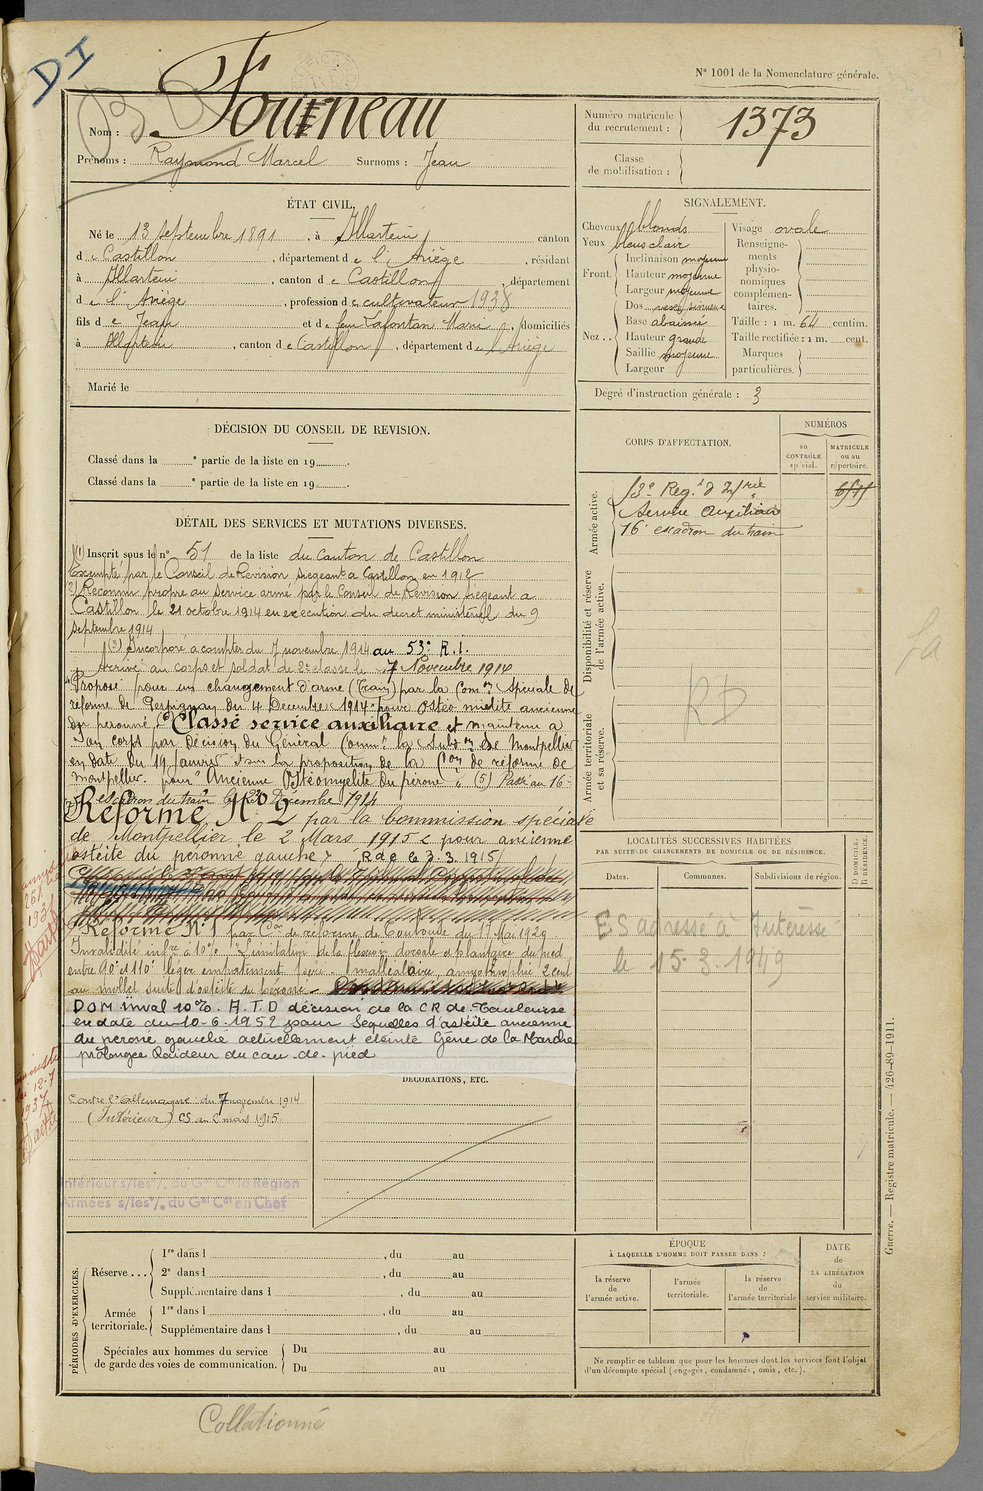 DI
N° 1001 de la Nomenclature générale.
Nom : Fourneau
Prénoms : Raymond Marcel Surnoms : Jean
Numéro matricule du recrutement : 1373
Classe de mobilisation :
ÉTAT CIVIL.
Né le 13 septembre 1891, à Illartein, canton
de Castillon, département de l'Ariège, résidant
à Illartein, canton de Castillon, département
de l'Ariège, profession de cultivateur 1938
fils de Jean et de feu Lafontan Marie, domiciliés
à Illartein, canton de Castillon, département de l'Ariège
Marié le
SIGNALEMENT.
Cheveux blonds
Yeux bleus clair
Front. Inclinaison moyenne
Hauteur moyenne
Largeur moyenne
Nez. Dos sinueux
Base abaissée
Hauteur grande
Saillie moyenne
Largeur
Visage ovale
Renseignements physionomiques complémentaires.
Taille : 1 m. 64 centim.
Taille rectifiée : 1 m. cent.
Marques particulières.
Degré d'instruction générale : 3
DÉCISION DU CONSEIL DE REVISION.
Classé dans la e partie de la liste en 19 .
Classé dans la e partie de la liste en 19 .
CORPS D'AFFECTATION.
NUMÉROS
au CONTRÔLE spécial.
MATRICULE ou au répertoire.
Armée active.
53e Reg.t d'Inf.rie
Service Auxiliaire
16e escadron du train
Disponibilité et réserve de l'armée active.
Armée territoriale et sa réserve.
RD
DÉTAIL DES SERVICES ET MUTATIONS DIVERSES.
(1) Inscrit sous le n° 51 de la liste du canton de Castillon
Exempté par le Conseil de Revision siégeant à Castillon en 1912
(2) Reconnu propre au service armé par le Conseil de Revision siégeant à
Castillon le 21 octobre 1914 en exécution du décret ministériel du 9
septembre 1914
(3) Incorporé à compter du 7 novembre 1914 au 53e R.I.
Arrivé au corps et soldat de 2e classe le 7 Novembre 1914
Proposé pour un changement d'arme (Train) par la Comon Spéciale de
réforme de Perpignan du 4 Décembre 1914 pour ostéo mielite ancienne
du peronné. Classé service auxiliaire et maintenu à
son corps par décision du Général Comm.t la Subd.on de Montpellier
en date du 19 Janvier et sur la proposition de la Con de réforme de
Montpellier pour "Ancienne Ostéomyelite du péroné" (5) Passé au 16e
escadron du train le Décembre 1914
Réformé N° 2 par la commission spéciale
de Montpellier le 2 Mars 1915 pour ancienne
ostéite du peronné gauche. R.d.c. le 3.3.1915
Réformé N° 1 par Con de réforme de Toulouse du 17 Mai 1929
Invalidité infre à 10% Limitation de la flexion dorsale et plantaire du pied
entre 90° et 110° léger empâtement malléolaire, amyotrophie 2 cent
au mollet suite d'ostéite du péroné.
DOM inval 10%. A.T.D décision de la CR de Toulouse
en date du 10-6-1952 pour Séquelles d'ostéite ancienne
du peroné gauche actuellement éteinte Gêne de la Marche
prolongée Raideur du cou-de-pied
LOCALITÉS SUCCESSIVES HABITÉES
PAR SUITE DE CHANGEMENTS DE DOMICILE OU DE RÉSIDENCE.
Dates.
Communes.
Subdivisions de région.
D DOMICILE.
R RÉSIDENCE.
ES adressé à Intéressé
le 15-3-1949
DÉCORATIONS, ETC.
Contre l'Allemagne du 7 novembre 1914
(Intérieur) CS au 2 mars 1915
Intérieur s/les % du Gal Ct la Région
Armées s/les % du Gal Ct en Chef
PÉRIODES D'EXERCICES.
Réserve... 1re dans l , du au
2e dans l , du au
Supplémentaire dans l , du au
Armée territoriale. 1re dans l , du au
Supplémentaire dans l , du au
Spéciales aux hommes du service de garde des voies de communication. Du au
Du au
ÉPOQUE
À LAQUELLE L'HOMME DOIT PASSER DANS :
la réserve de l'armée active.
l'armée territoriale.
la réserve de l'armée territoriale
DATE de LA LIBÉRATION du service militaire.
Ne remplir ce tableau que pour les hommes dont les services font l'objet
d'un décompte spécial (engagés, condamnés, omis, etc.).
Guerre. — Registre matricule. — 426-89-1911.
Collationné